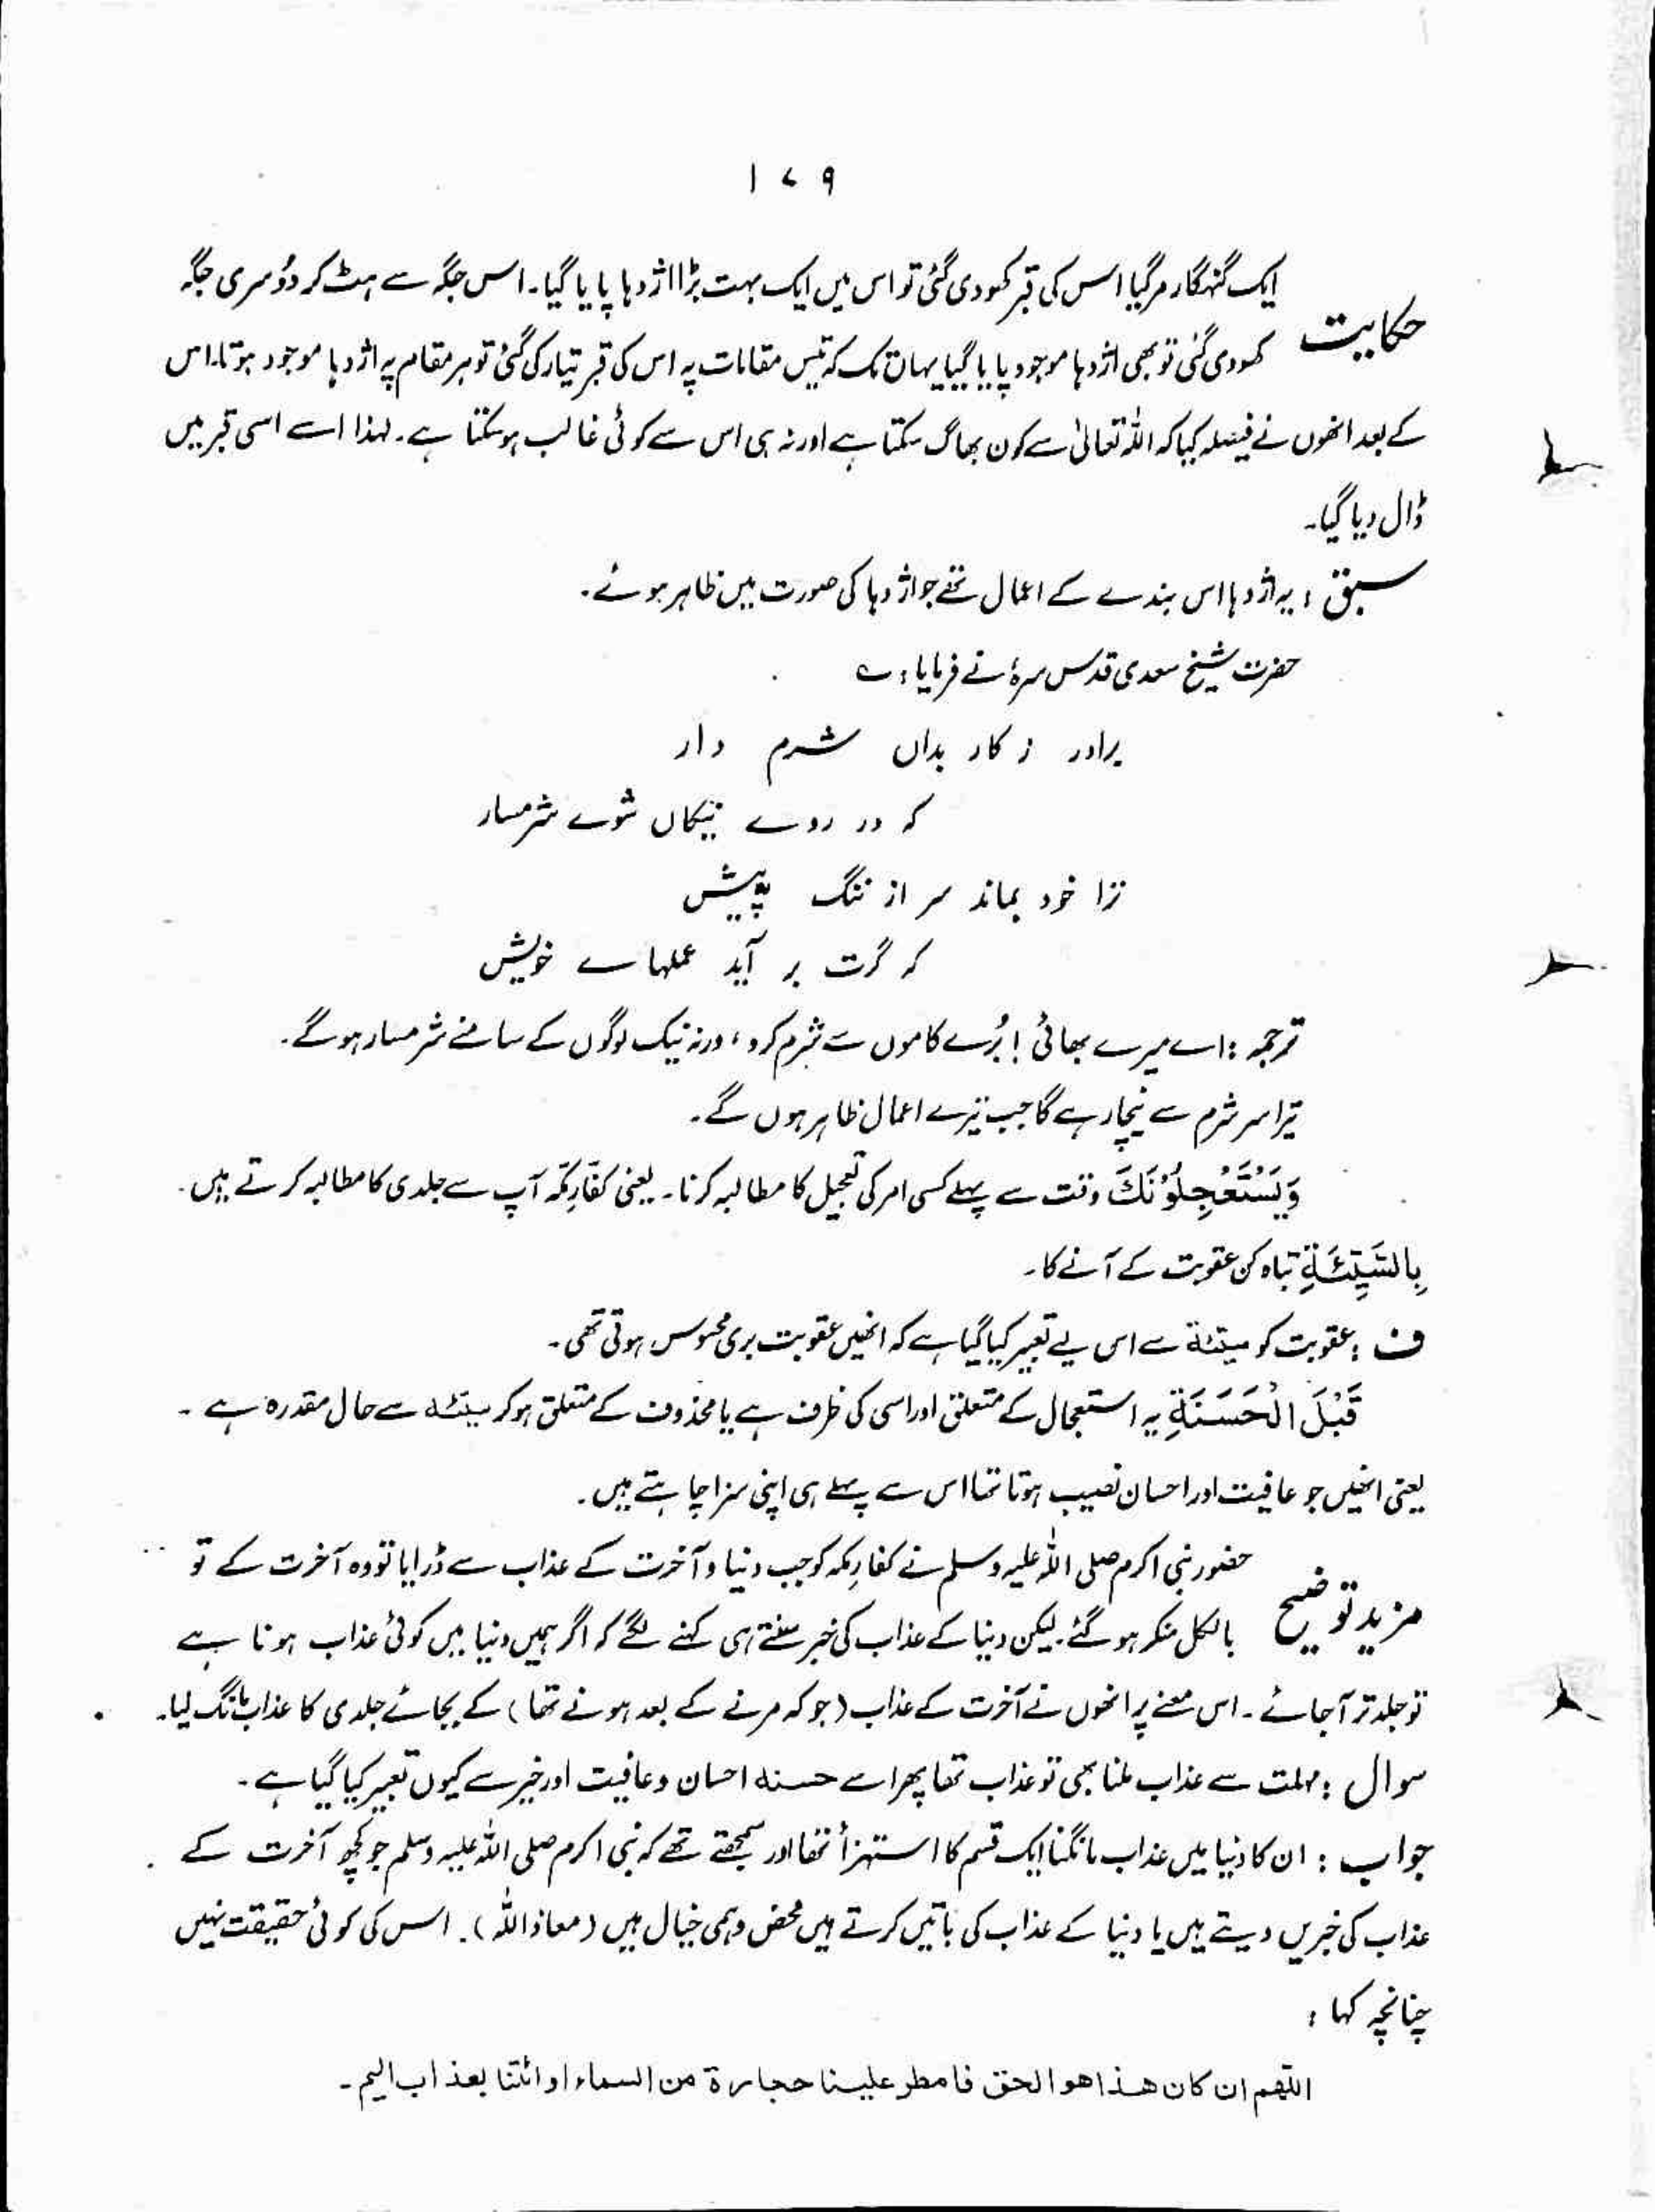 ۱۷۹
ایک گنہگار مر گیا اس کی قبر کھودی گئی تو اس میں ایک بہت بڑا اژدہا پایا گیا۔ اس جگہ سے ہٹ کر دُوسری جگہ
حکایت کھودی گئی تو بھی اژدہا موجود پایا گیا یہاں تک کہ تیس مقامات پہ اس کی قبر تیار کی گئی تو ہر مقام پہ اژدہا موجود ہوتا۔ اس
کے بعد انھوں نے فیصلہ کیا کہ اللہ تعالیٰ سے کون بھاگ سکتا ہے اور نہ ہی اس سے کوئی غالب ہو سکتا ہے۔ لہذا اسے اسی قبر میں
ڈال دیا گیا۔
سبق : یہ اژدہا اس بندے کے اعمال تھے جو اژدہا کی صورت میں ظاہر ہوئے۔
حضرت شیخ سعدی قدس سرہٗ نے فرمایا : ؎
برادر ز کار بداں شرم دار
کہ در روے نیکاں شوے شرمسار
ترا خود بماند سر از ننگ بہ پیش
کہ گرت بر آید عملہاے خویش
ترجمہ : اے میرے بھائی ! بُرے کاموں سے شرم کرو، ورنہ نیک لوگوں کے سامنے شرمسار ہو گے۔
تیرا سر شرم سے نیچا رہے گا جب تیرے اعمال ظاہر ہوں گے۔
وَیَسْتَعْجِلُوْنَكَ وقت سے پہلے کسی امر کی تعجیل کا مطالبہ کرنا۔ یعنی کفّارِ مکّہ آپ سے جلدی کا مطالبہ کرتے ہیں۔
بِالسَّیِّئَةِ تباہ کن عقوبت کے آنے کا۔
ف : عقوبت کو سیّئة سے اس لیے تعبیر کیا گیا ہے کہ انھیں عقوبت بری محسوس ہوتی تھی۔
قَبْلَ الْحَسَنَةِ یہ استعجال کے متعلق اور اسی کی ظرف ہے یا محذوف کے متعلق ہو کر سیّئه سے حال مقدرہ ہے ۔
یعنی انھیں جو عافیت اور احسان نصیب ہوتا تھا اس سے پہلے ہی اپنی سزا چاہتے ہیں۔
حضور نبی اکرم صلی اللہ علیہ وسلم نے کفارِ مکہ کو جب دنیا و آخرت کے عذاب سے ڈرایا تو وہ آخرت کے تو
مزید توضیح بالکل منکر ہو گئے۔ لیکن دنیا کے عذاب کی خبر سنتے ہی کہنے لگے کہ اگر ہمیں دنیا میں کوئی عذاب ہونا ہے
تو جلد تر آجائے ۔ اس معنے پر انھوں نے آخرت کے عذاب (جو کہ مرنے کے بعد ہونے تھا) کے بجائے جلدی کا عذاب مانگ لیا۔
سوال : مہلت سے عذاب ملنا بھی تو عذاب تھا پھر اسے حسنہ احسان و عافیت اور خیر سے کیوں تعبیر کیا گیا ہے۔
جواب : ان کا دنیا میں عذاب مانگنا ایک قسم کا استہزأ تھا اور سمجھتے تھے کہ نبی اکرم صلی اللہ علیہ وسلم جو کچھ آخرت کے
عذاب کی خبریں دیتے ہیں یا دنیا کے عذاب کی باتیں کرتے ہیں محض وہمی خیال ہیں (معاذ اللہ)۔ اس کی کوئی حقیقت نہیں
چنانچہ کہا :
اللّٰھم ان کان ھذا ھو الحق فامطر علینا حجارة من السماء او ائتنا بعذاب الیم۔